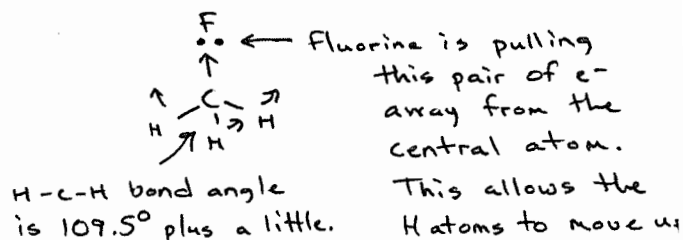 F
Fluorine is pulling
this pair of e-
away from the
central atom.
This allows the
H atoms to move
C
H H H
H-C-H bond angle
is 109.5° plus a little.